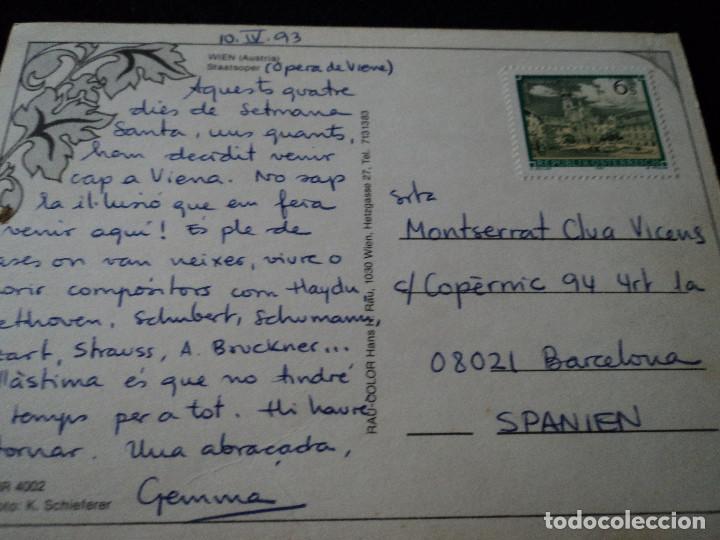 10.IV.93
WIEN (Austria)
Staatsoper (Òpera de Viena)
Aquests quatre
dies de Setmana
Santa, uns quants,
hem decidit venir
cap a Viena. No sap
la il·lusió que em feia
venir aquí! És ple de
ases on van neixer, viure o
orir compositors com Haydn,
eethoven, Schubert, Schumann,
zart, Strauss, A. Bruckner...
llàstima és que no tindré
temps per a tot. Hi hauré
tornar. Una abraçada,
Gemma
BR 4002
oto: K. Schieferer
RAU-COLOR Hans H. Rau, 1030 Wien, Hetzgasse 27, Tel. 7131383
6 S
REPUBLIK ÖSTERREICH
Srta
Montserrat Clua Vicens
c/Copèrnic 94 4rt 1a
08021 Barcelona
SPANIEN
todocoleccion